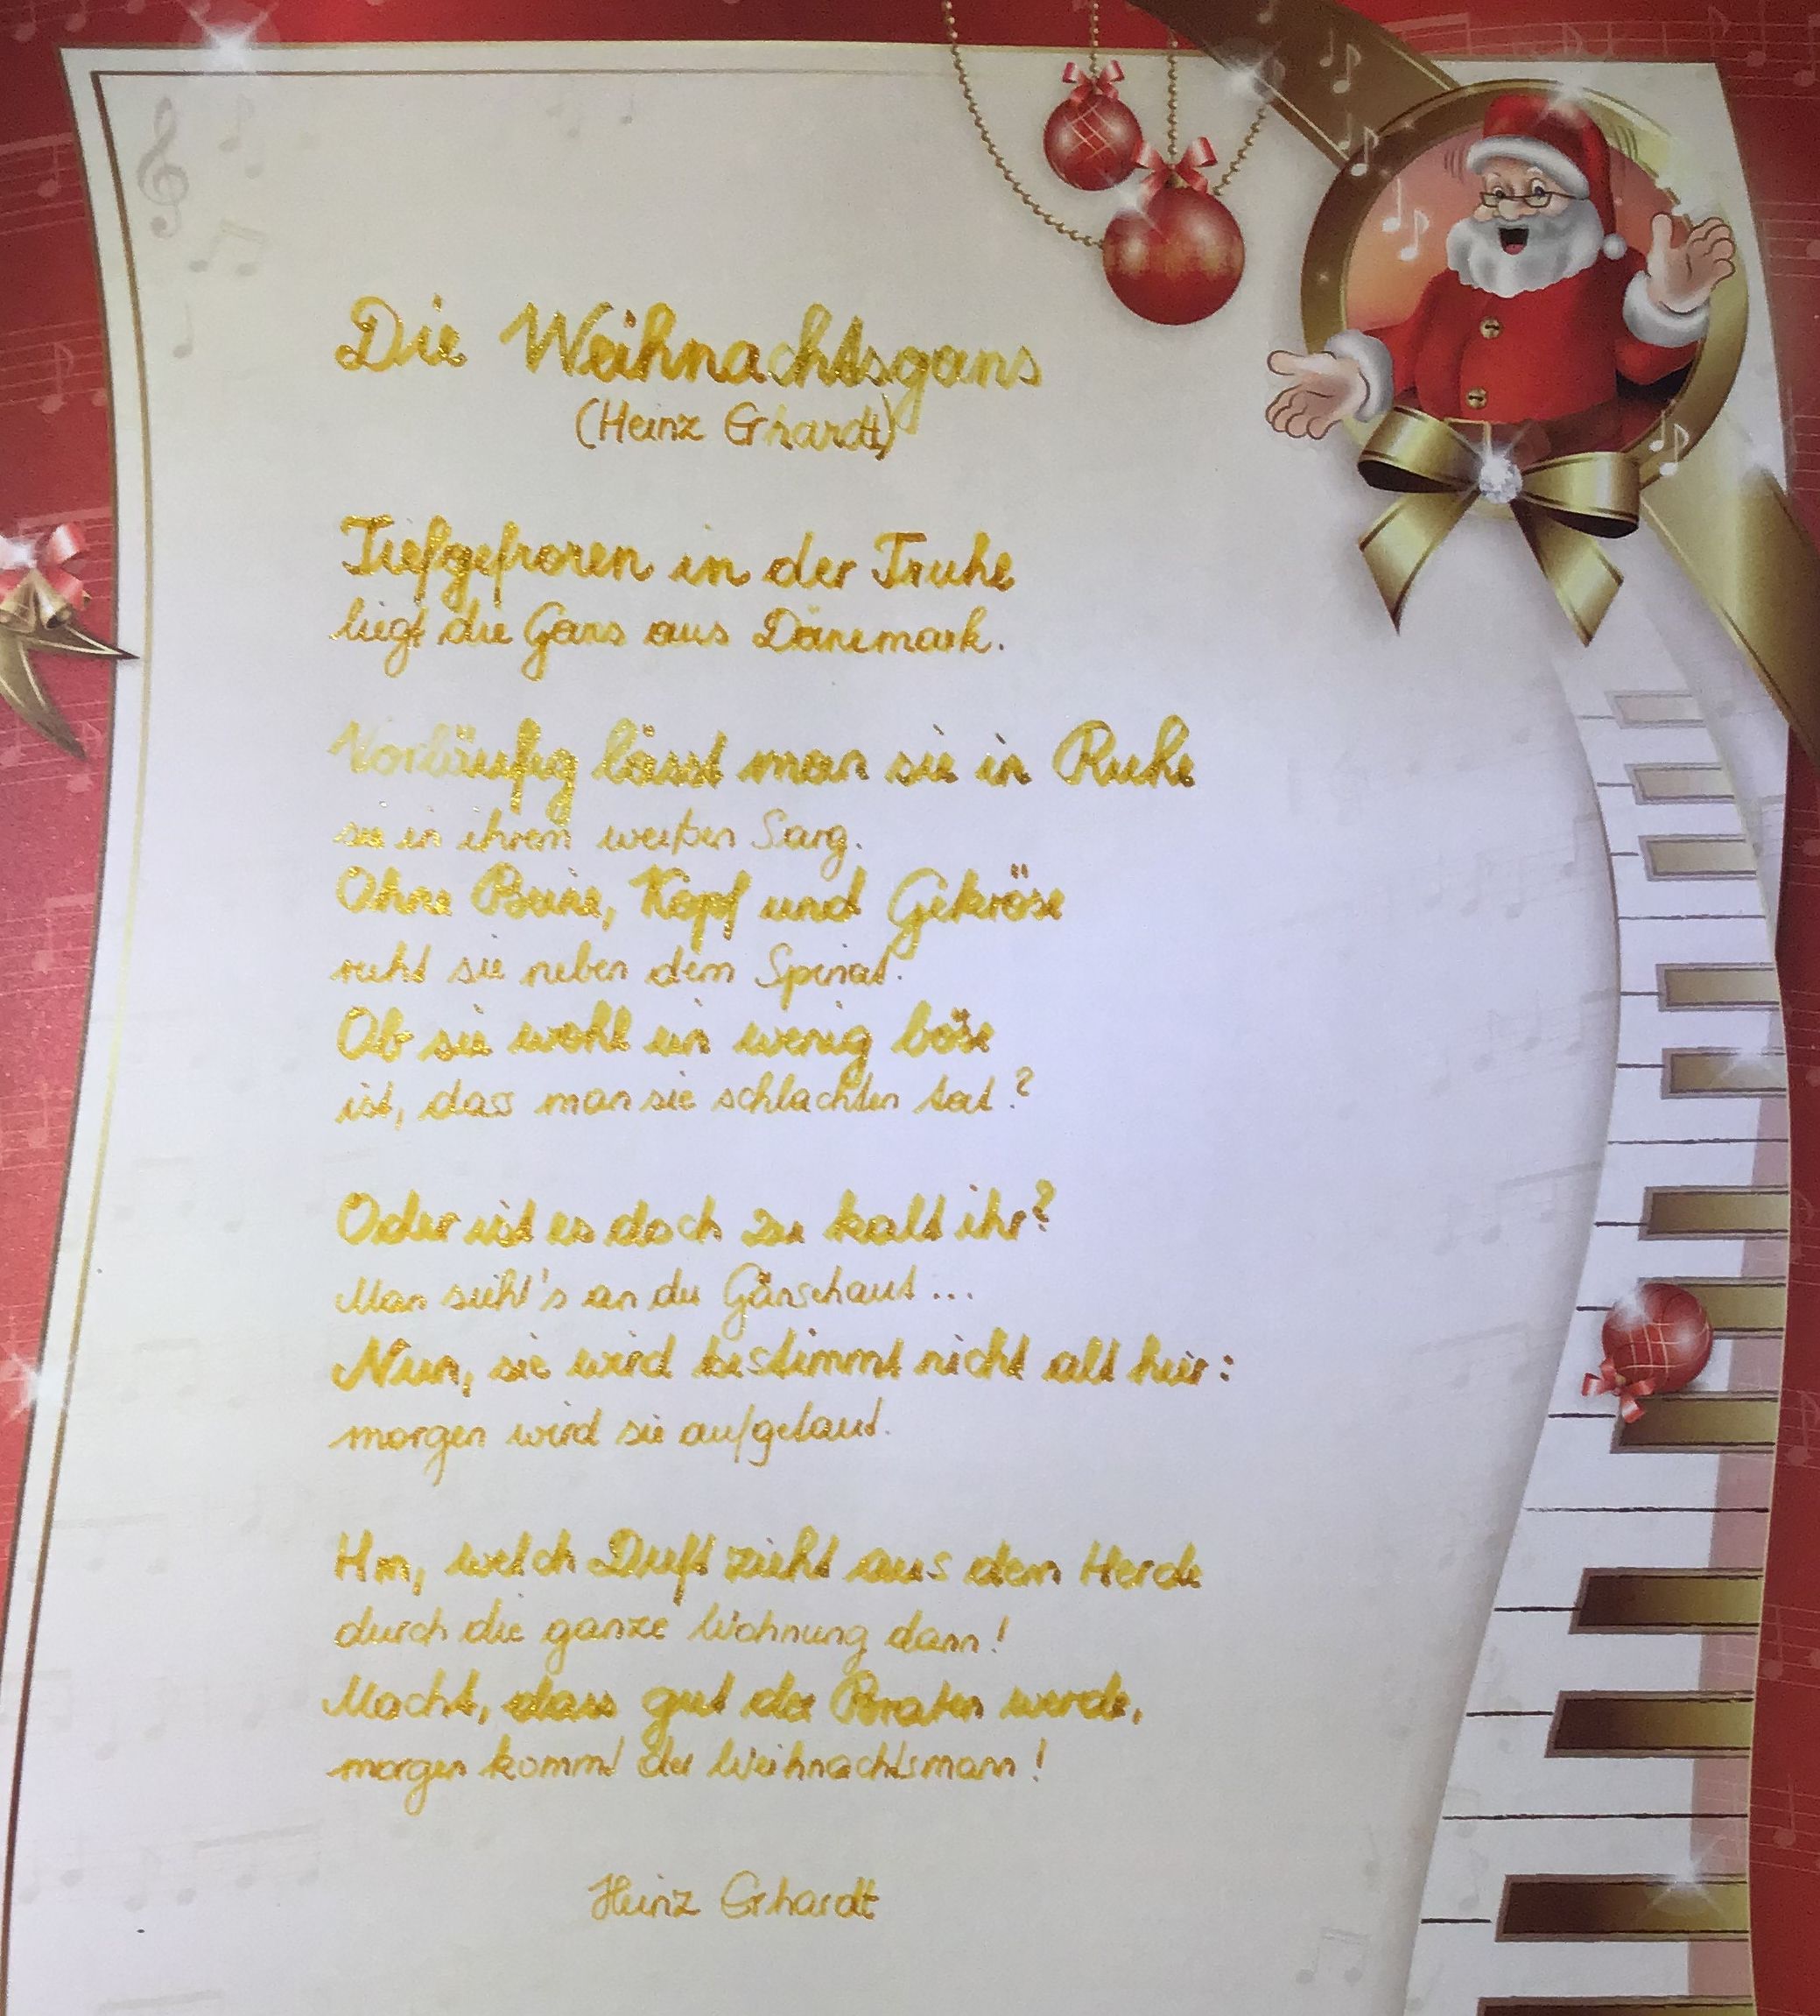 Die Weihnachtsgans
(Heinz Erhardt)
Tiefgefroren in der Truhe
liegt die Gans aus Dänemark.
Vorläufig lässt man sie in Ruhe
sie in ihrem weißen Sarg.
Ohne Beine, Kopf und Gekröse
ruht sie neben dem Spinat.
Ob sie wohl ein wenig böse
ist, dass man sie schlachten tat?
Oder ist es doch zu kalt ihr?
Man sieht's an der Gänsehaut...
Nun, sie wird bestimmt nicht alt hier:
morgen wird sie aufgetaut.
Hm, welch Duft zieht aus dem Herde
durch die ganze Wohnung dann!
Macht, dass gut der Braten werde,
morgen kommt der Weihnachtsmann!
Heinz Erhardt